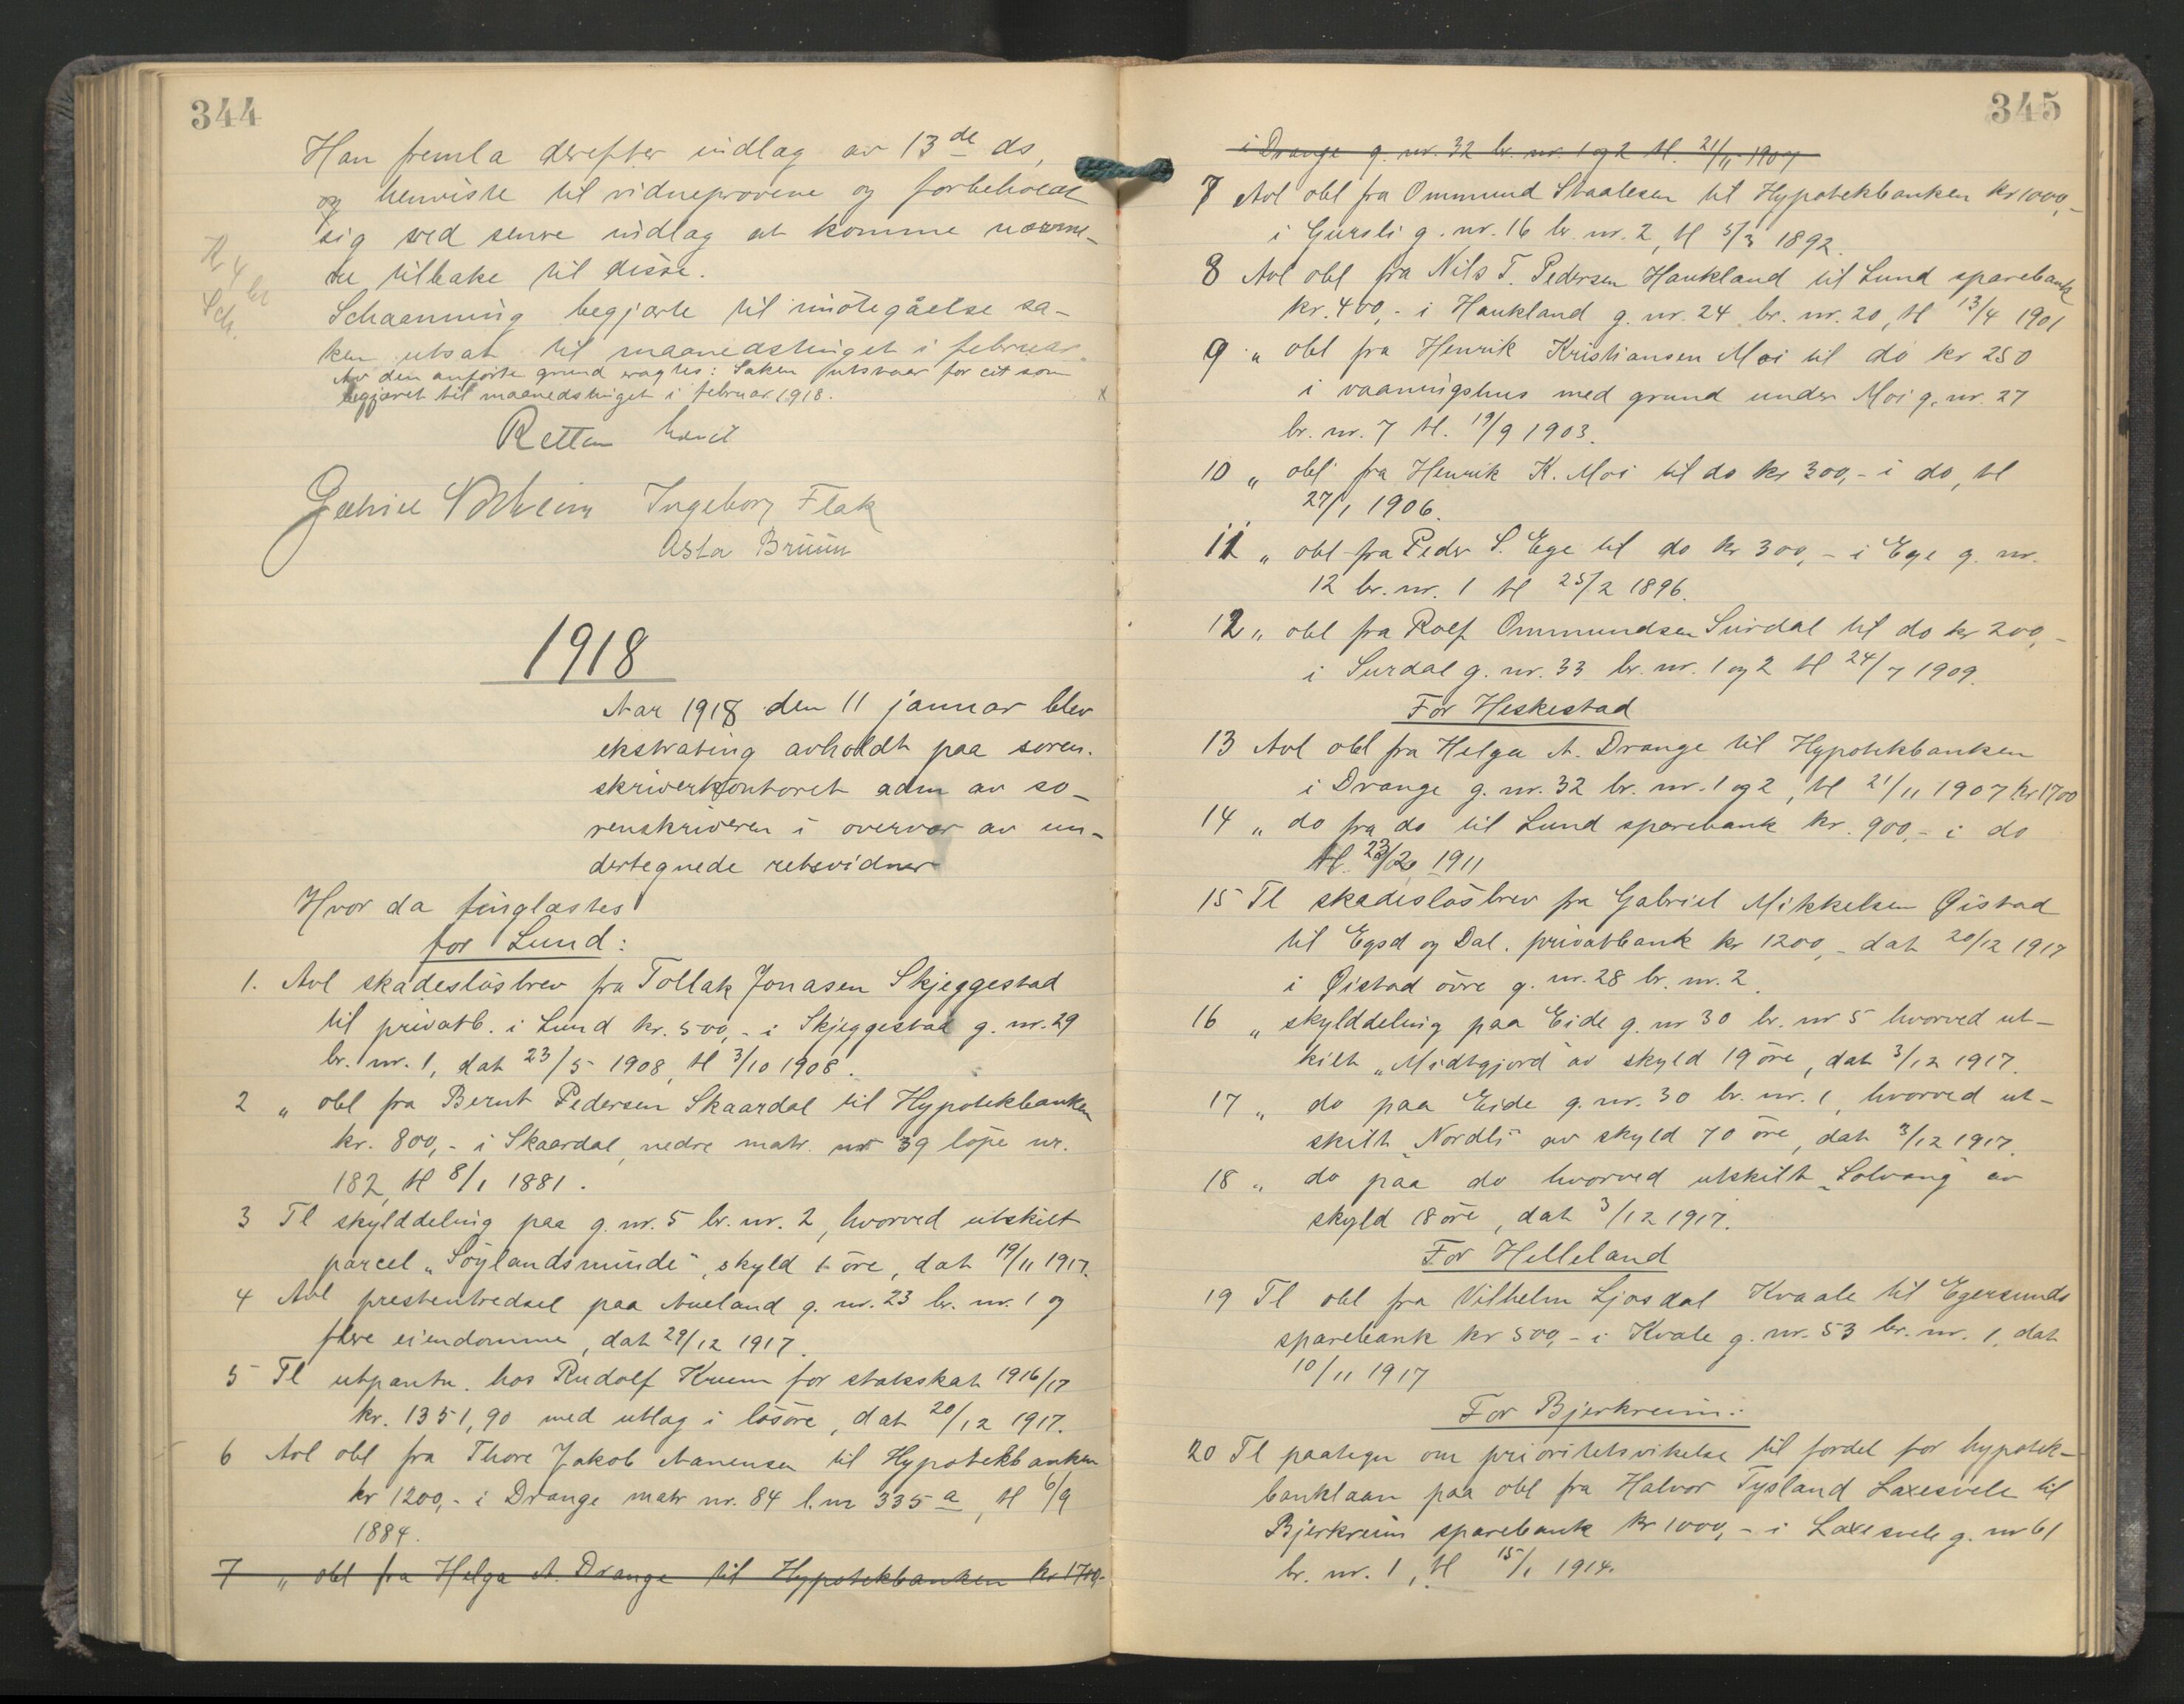 344
Han fremla derefter indlag av 13de ds,
og henviste til vidneprovene og forbeholdt
sig ved senere indlag at komme nærme-
re tilbake til disse.
Schaanning begjærte til imøtegåelse sa-
ken utsat til maanedstinget i februar.
Av den anførte grund eragtes: Saken utstaar for eit som
begjæret til maanedstinget i februar 1918.
Retten hævet
Ingeborg Flak
Asta Bruun
1918
Aar 1918 den 11 januar blev
ekstrating avholdt paa soren-
skriverkontoret adm av so-
renskriveren i overvær av un-
dertegnede retsvidner
Hvor da tinglæstes
for Lund:
1. Avl skadesløsbrev fra Tollak Jonasen Skjeggestad
til privatb. i Lund kr. 500,- i Skjeggestad g. nr. 29
br. nr. 1, dat 23/5 1908, tl 3/10 1908.
2 „ obl fra Bernt Pedersen Skaardal til Hypotekbanken
kr. 800,- i Skaardal, nedre matr. nr 39 løpe nr.
182, tl 8/1 1881.
3 Tl skylddeling paa g. nr. 5 br. nr. 2, hvorved utskilt
parcel „Søylandsminde", skyld 1 øre, dat 19/11 1917.
4 Avl prestentredsel paa Aueland g. nr. 23 br. nr. 1 og
flere eiendomme, dat 29/12 1917.
5 Tl utpantn. hos Rudolf Krumm for statsskat 1916/17
kr. 1351,90 med utlag i løsøre, dat 20/12 1917.
6 Avl obl fra Thore Jakob Aanensen til Hypotekbanken
kr 1200,- i Drange matr nr. 84 l. nr 335 a, tl 6/9
1884.
7 „ obl fra Helga A. Drange til Hypotekbanken kr 1700,-
345
i Drange g. nr. 32 br. nr. 1 og 2 tl. 21/11 1907
7 Avl obl fra Ommund Staalesen til Hypotekbanken kr 1000,-
i Gursli g. nr. 16 br. nr. 2, tl 5/3 1892.
8 Avl obl fra Nils T. Pedersen Haukland til Lund sparebank
kr. 400,- i Haukland g. nr. 24 br. nr. 20, tl 13/4 1901
9 „ obl fra Henrik Kristiansen Moi til do kr 250
i vaaningshus med grund under Moi g. nr. 27
br. nr. 7 tl. 19/9 1903.
10 „ obl fra Henrik K. Moi til do kr 300,- i do, tl
27/1 1906.
11 „ obl fra Peder S. Ege til do kr 300,- i Ege g. nr.
12 br. nr. 1 tl 25/2 1896.
12 „ obl fra Rolf Ommundsen Surdal til do kr 200,-
i Surdal g. nr. 33 br. nr. 1 og 2 tl 24/7 1909.
For Heskestad
13 Avl obl fra Helga A. Drange til Hypotekbanken
i Drange g. nr. 32 br. nr. 1 og 2, tl 21/11 1907 kr 1700
14 „ do fra do til Lund sparebank kr. 900,- i do
tl. 23/2 1911
15 Tl skadesløsbrev fra Gabriel Mikkelsen Øistad
til Egsd og Dal. privatbank kr 1200,- dat 20/12 1917
i Øistad øvre g. nr. 28 br. nr. 2.
16 „ skylddeling paa Eide g. nr 30 br. nr 5 hvorved ut-
kilt „Midtgjord" av skyld 19 øre, dat 3/12 1917.
17 „ do paa Eide g. nr. 30 br. nr. 1, hvorved ut-
skilt „Nordli" av skyld 70 øre, dat 3/12 1917.
18 „ do paa do hvorved utskilt „Solvang" av
skyld 18 øre, dat 3/12 1917.
For Helleland
19 Tl obl fra Vilhelm Ljosdal Kvaale til Egersunds
sparebank kr 500,- i Kvale g. nr. 53 br. nr. 1, dat
10/11 1917
For Bjerkreim:
20 Tl paategn om prioritetsvikelse til fordel for hypotek-
banklaan paa obl fra Halvor Tysland Laxesvele til
Bjerkreim sparebank kr 1000,- i Laxesvele g. nr 61
br. nr. 1, tl 15/1 1914.